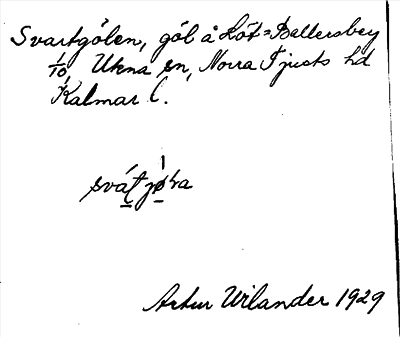 Svartgölen, göl å Löt=Ballersbey
1/10, Ukna sn, Norra Tjusts hd
Kalmar l.
Artur Wilander 1929